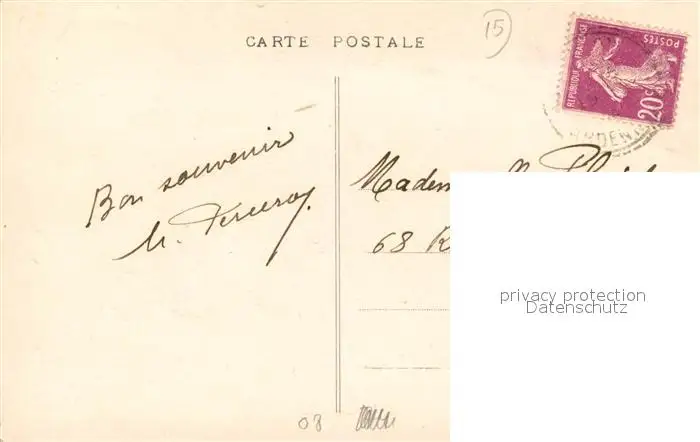 CARTE POSTALE
15
POSTES
REPUBLIQUE FRANÇAISE
20c
ARDENNES
Bon souvenir
68 R
privacy protection
Datenschutz
08